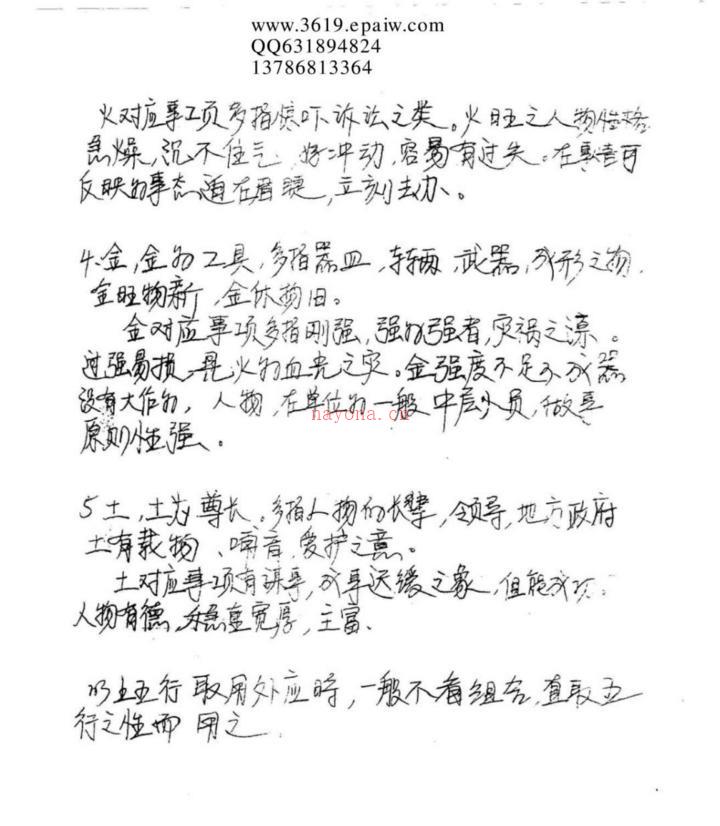 www.3619.epaiw.com
QQ631894824
13786813364
火对应事项多指惊吓诉讼之类。火旺之人物性格
急燥,沉不住气 好冲动,容易有过失。在事
反映的事态迫在眉睫,立刻去办、。
4.金,金为工具,多指器皿,车辆,武器,成形之物.
金旺物新,金休物旧。
金对应事项多指刚强,强的强者,灾祸之源。
过强易损,见火为血光之灾。金强度不足不成器
没有大作为,人物,在单位为一般中层人员,做事
hayona.cn
原则性强。
5土,土为尊长。多指人物的长辈,领导,地方政府
土有载物、哺育,爱护之意。
土对应事项有谋事,成事迟缓之象,但能成功.
人物有德,宽厚,主富.
以上五行取用外应时,一般不看组合,直取五
行之性而用之